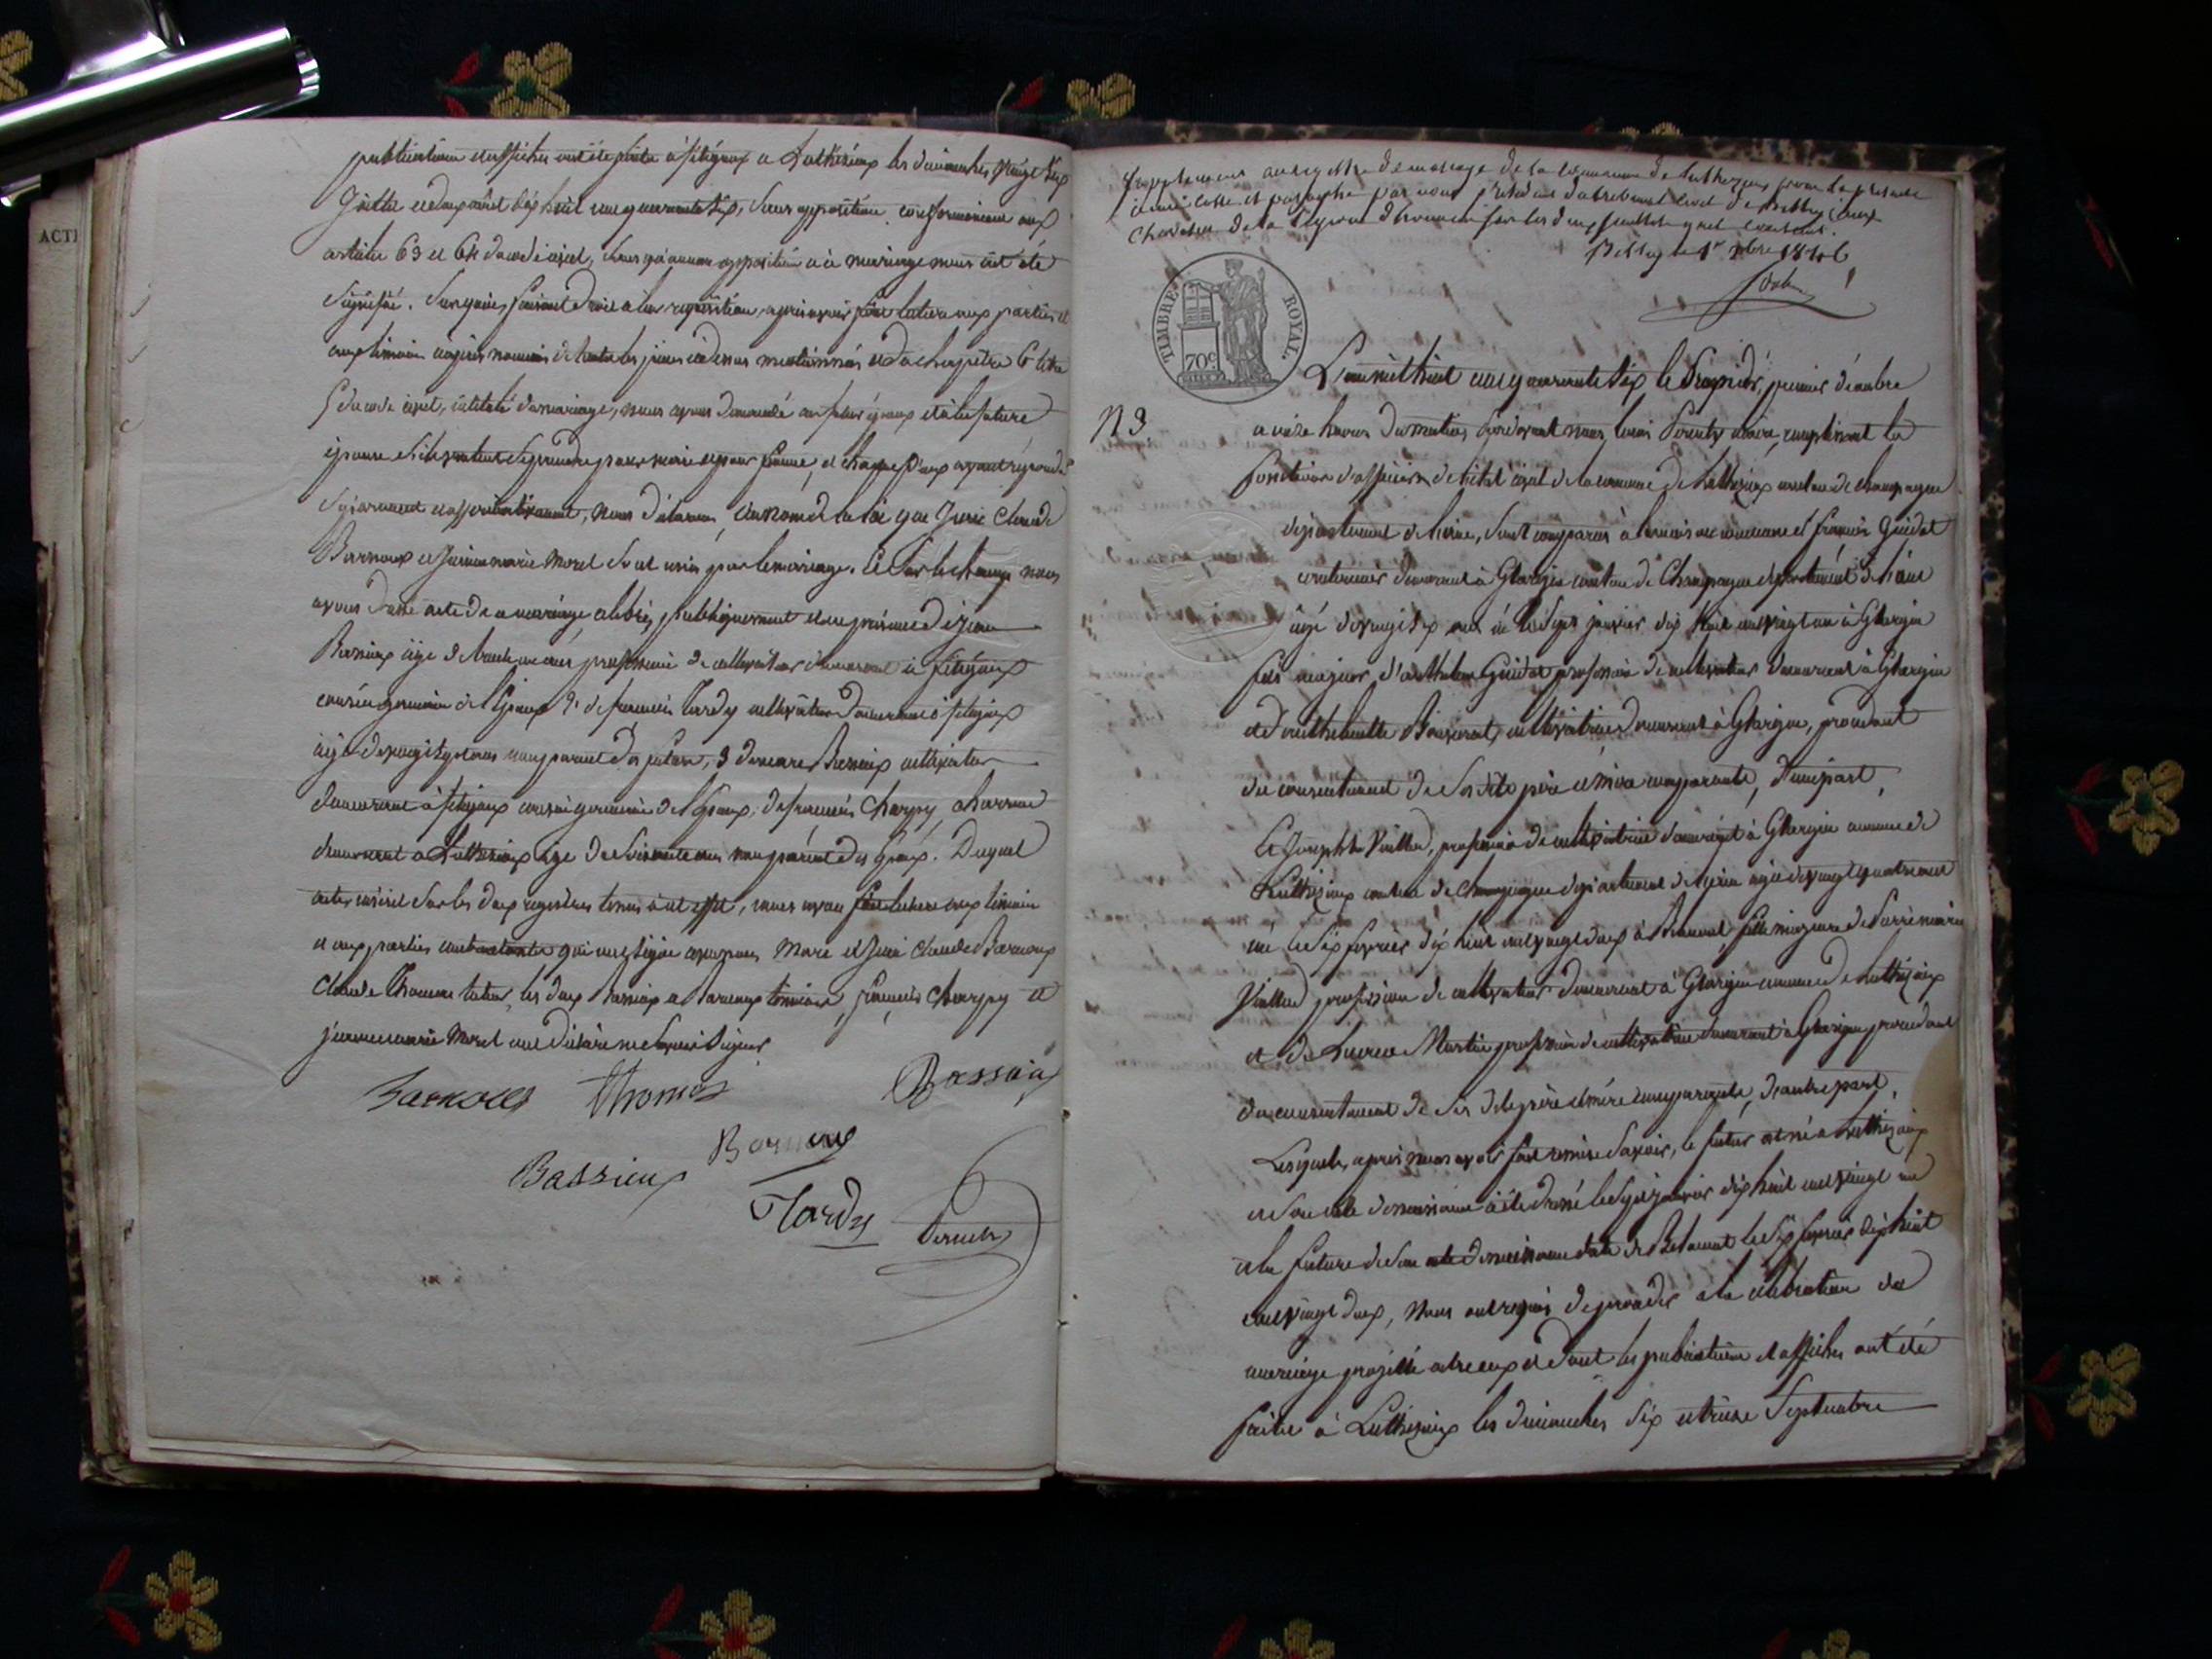 ACTE
publications et affiches ont été faites à fitigneux et Luthézieux les dimanches
juillet et deux août dix huit cent quarante six, sans opposition conformément aux
articles 63 et 64 du code civil, sans qu'aucune opposition à ce mariage nous ait été
signifié. Sur quoi, faisant droit à leur réquisition, après avoir fait lecture aux parties et
aux témoins des pièces ci dessus mentionnées et du chapitre 6 titre
5 du code civil, intitulé du mariage, nous avons demandé au futur époux et à la future
épouse s'ils veulent se prendre pour mari et pour femme, et chacun d'eux ayant répondu
séparément et affirmativement, nous déclarons, au nom de la loi que Claude
Barnoux et marie Morel sont unis par le mariage. Et sur le champ nous
avons dressé acte de ce mariage célébré, publiquement et en présence de
Bassieux âgé de ans profession de cultivateur demeurant à
cousin germain de l'époux 2° de francois Tardy cultivateur demeurant à
âgé de vingt ans non parent du futur, 3 de Bassieux cultivateur
demeurant à cousin germain de l'époux, de francois Charpy, charron
demeurant à Luthézieux âgé de soixante ans non parent des époux. Duquel
acte, inscrit sur les deux registres tenus à cet effet, nous avons fait lecture aux témoins
et aux parties contractantes qui ont signé avec nous Maire et Claude Barnoux
Claude Thomas tuteur, les deux Bassieux et témoins, francois Charpy et
jeanne marie Morel ont déclaré ne savoir signer
Barnoux Thomas Bassieux
Barnoux
Bassieux
Tardy
Supplement au registre de mariage de la commune de Luthezieu pour la présente
année, cotté et paraphé par nous président du tribunal civil de Belley
chevalier de la légion d'honneur sur les deux feuillets
Belley le 1er Xbre 1846
TIMBRE ROYAL.
70c
L'an mil huit cent quarante six le premier décembre
N 3
à onze heures du matin, pardevant nous, Louis maire, remplissant les
fonctions d'officier de l'état civil de la commune de Luthézieux canton de Champagne
département de l'ain, sont comparus à la maison commune francois Guidet
demeurant à Glargin canton de Champagne département de l'ain
âgé de vingt ans né le sept janvier dix huit cent vingt un à Glargin
fils majeur d'anthelme Guidet profession de cultivateur demeurant à Glargin
et d'anthelmette cultivatrice demeurant à Glargin, procédant
du consentement de ses dits père et mère comparants, d'une part,
Et Josephte profession de cultivatrice demeurant à Glargin commune de
Luthézieux canton de Champagne département de l'ain âgée de vingt quatre ans
née le six février dix huit cent vingt deux à fille majeure de Pierre marie
profession de cultivateur demeurant à Glargin commune de Luthézieux
et de Martin profession de cultivatrice demeurant à Glargin procédant
du consentement de ses dits père et mère comparants, d'autre part,
Lesquels, après nous avoir fait remise savoir, le futur né à Luthézieux
de son acte de naissance a été dressé le sept janvier dix huit cent vingt un
et la future de son acte de naissance daté de le six février dix huit
cent vingt deux, nous ont requis de procéder à la célébration du
mariage projetté entre eux et dont les publications et affiches ont été
faites à Luthézieux les dimanches six et treize Septembre